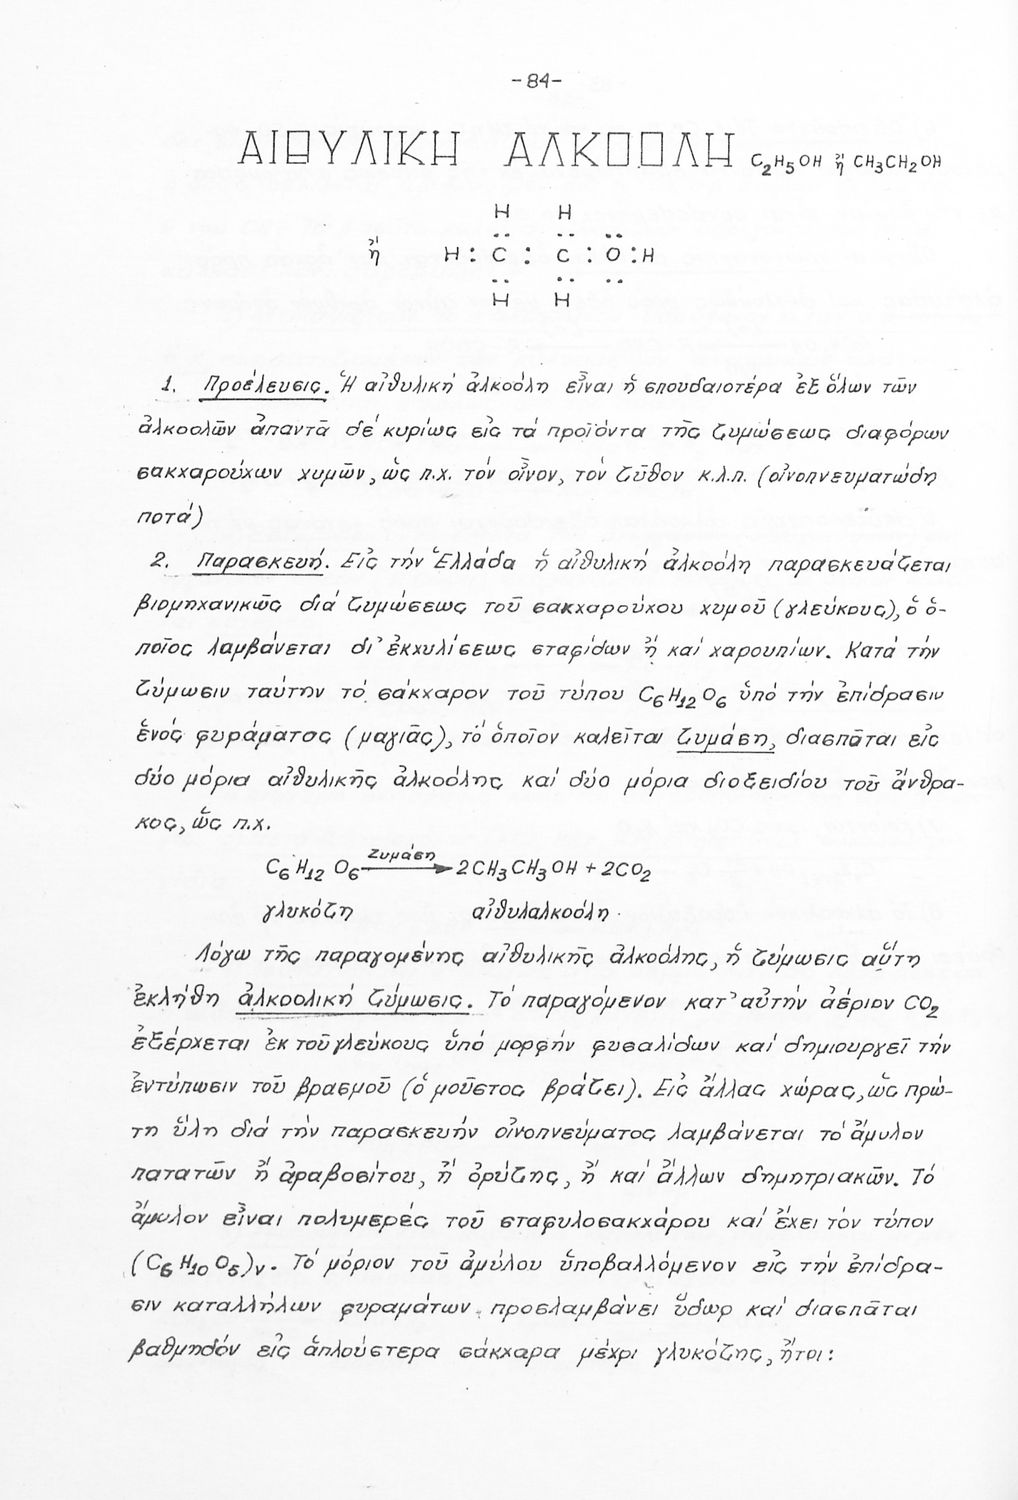 -84-
ΑΙΘΥΛΙΚΗ ΑΛΚΟΟΛΗ C₂H₅OH ἤ CH₃CH₂OH
H H
.. .. ..
ἤ H : C : C : O : H
.. .. ..
H H
1. Προέλευσις. Ἡ αἰθυλική ἀλκοόλη εἶναι ἡ σπουδαιοτέρα ἐξ ὅλων τῶν
ἀλκοολῶν ἀπαντᾶ δέ κυρίως εἰς τά προϊόντα τῆς ζυμώσεως διαφόρων
σακχαρούχων χυμῶν, ὡς π.χ. τόν οἶνον, τόν ζῦθον κ.λ.π. (οἰνοπνευματώδη
ποτά)
2. Παρασκευή. Εἰς τήν Ἑλλάδα ἡ αἰθυλική ἀλκοόλη παρασκευάζεται
βιομηχανικῶς διά ζυμώσεως τοῦ σακχαρούχου χυμοῦ (γλεύκους), ὁ ὁ-
ποῖος λαμβάνεται δι' ἐκχυλίσεως σταφίδων ἤ καί χαρουπίων. Κατά τήν
ζύμωσιν ταύτην τό σάκχαρον τοῦ τύπου C₆H₁₂O₆ ὑπό τήν ἐπίδρασιν
ἑνός φυράματος (μαγιᾶς), τό ὁποῖον καλεῖται ζυμάση, διασπᾶται εἰς
δύο μόρια αἰθυλικῆς ἀλκοόλης καί δύο μόρια διοξειδίου τοῦ ἄνθρα-
κος, ὡς π.χ.
C₆H₁₂O₆ —Ζυμάση→ 2CH₃CH₃OH + 2CO₂
γλυκόζη αἰθυλαλκοόλη
Λόγω τῆς παραγομένης αἰθυλικῆς ἀλκοόλης, ἡ ζύμωσις αὕτη
ἐκλήθη ἀλκοολική ζύμωσις. Τό παραγόμενον κατ' αὐτήν ἀέριον CO₂
ἐξέρχεται ἐκ τοῦ γλεύκους ὑπό μορφήν φυσαλίδων καί δημιουργεῖ τήν
ἐντύπωσιν τοῦ βρασμοῦ (ὁ μοῦστος βράζει). Εἰς ἄλλας χώρας, ὡς πρώ-
τη ὕλη διά τήν παρασκευήν οἰνοπνεύματος λαμβάνεται τό ἄμυλον
πατατῶν ἤ ἀραβοσίτου, ἤ ὀρύζης, ἤ καί ἄλλων δημητριακῶν. Τό
ἄμυλον εἶναι πολυμερές τοῦ σταφυλοσακχάρου καί ἔχει τόν τύπον
(C₆H₁₀O₅)ν. Τό μόριον τοῦ ἀμύλου ὑποβαλλόμενον εἰς τήν ἐπίδρα-
σιν καταλλήλων φυραμάτων προσλαμβάνει ὕδωρ καί διασπᾶται
βαθμηδόν εἰς ἁπλούστερα σάκχαρα μέχρι γλυκόζης, ἤτοι: